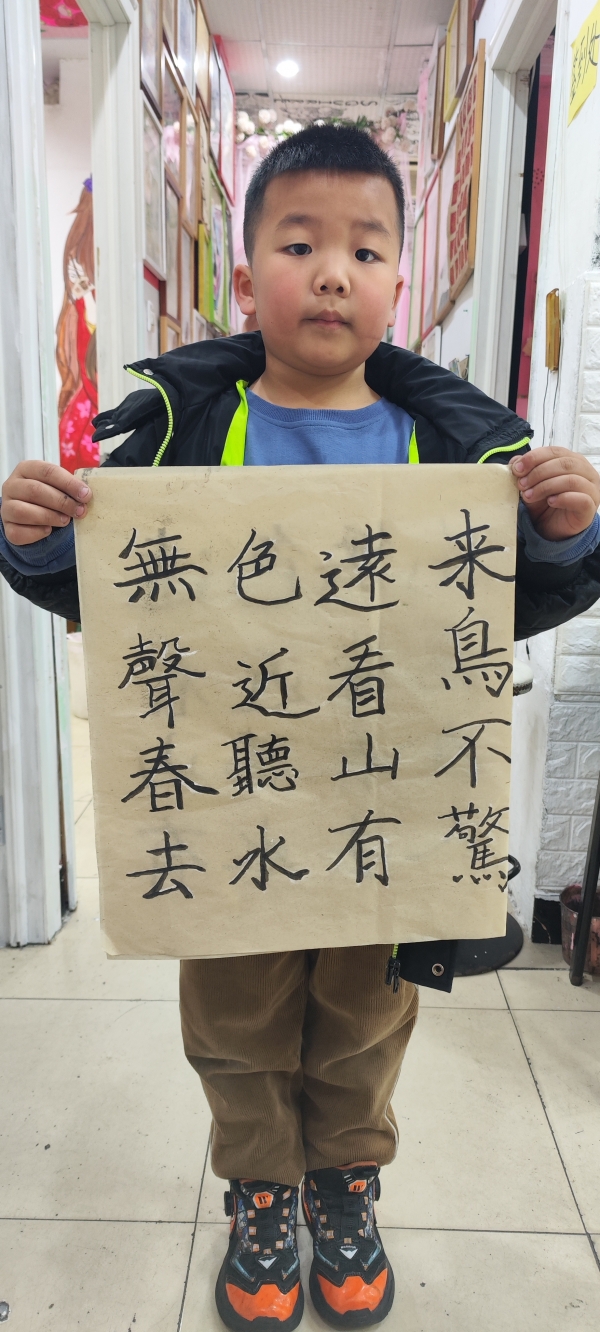 来鳥不驚
遠看山有
色近聽水
無聲春去
签到处